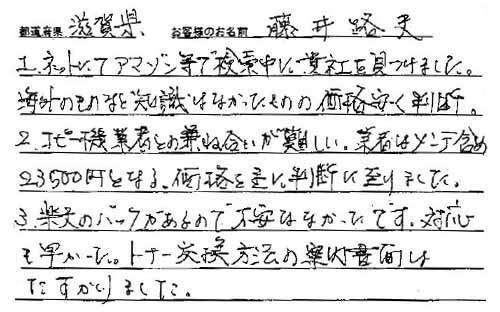 都道府県 滋賀県 お客様のお名前 藤井路夫
1.ネットにてアマゾン等で検索中に貴社を見つけました。
海外のものなど知識はなかったものの価格安く判断。
2.コピー機業者との兼ね合いが難しい。業者はメンテ含め
23500円となる。価格を差に判断に至りました。
3.楽天のバックがあるので不安はなかったです。対応
も早かった。トナー交換方法の案内書面は
たすかりました。